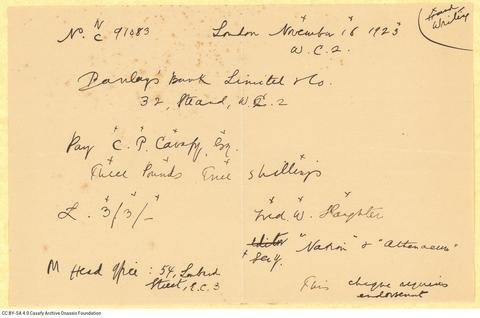 Hand
Writing
No. N/C 97083 London November 16 1923
W.C.2.
Barclay's Bank Limited & Co.
32, Strand, W.C.2
Pay C. P. Cavafy, Esq.
Three Pounds Three shillings
£. 3/3/-
Fred. W.
Editor "Nation" & "Athenaeum"
M Head Office: 54, Lombard
Street, E.C.3
This cheque requires
endorsement
CC BY-SA 4.0 Cavafy Archive Onassis Foundation